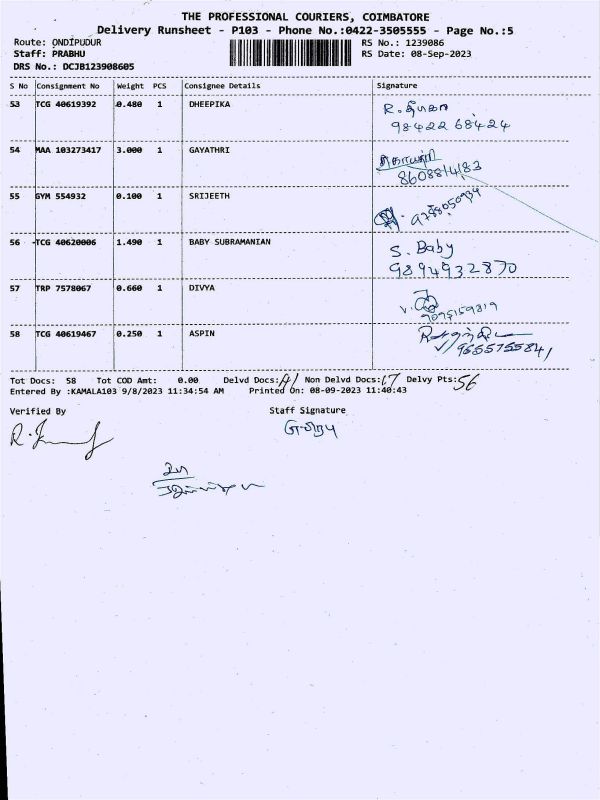 THE PROFESSIONAL COURIERS, COIMBATORE
Delivery Runsheet - P103 - Phone No.:0422-3505555 - Page No.:5
Route: ONDIPUDUR RS No.: 1239086
Staff: PRABHU RS Date: 08-Sep-2023
DRS No.: DCJB123908605
S No Consignment No Weight PCS Consignee Details Signature
53 TCG 40619392 0.480 1 DHEEPIKA R. தீபிகா
98422 68424
54 MAA 103273417 3.000 1 GAYATHRI காயத்ரி
8608814183
55 GYM 554932 0.100 1 SRIJEETH 9788050934
56 TCG 40620006 1.490 1 BABY SUBRAMANIAN S. Baby
9894932870
57 TRP 7578067 0.660 1 DIVYA V.
9095159819
58 TCG 40619467 0.250 1 ASPIN
9655755841
Tot Docs: 58 Tot COD Amt: 0.00 Delvd Docs:41 Non Delvd Docs:17 Delvy Pts:56
Entered By :KAMALA103 9/8/2023 11:34:54 AM Printed On: 08-09-2023 11:40:43
Verified By Staff Signature